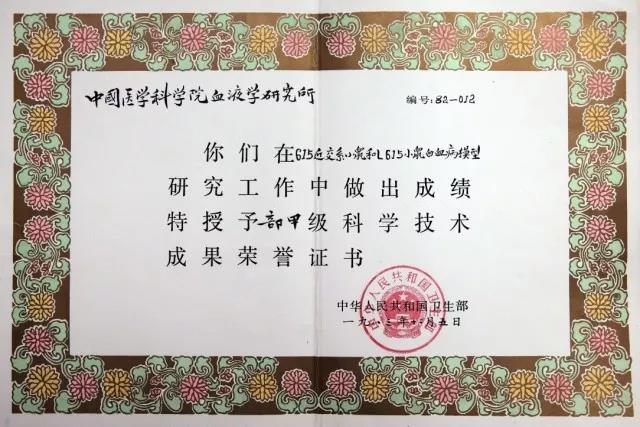 中國医学科学院血液学研究所
编号:82-012
你们在615近交系小鼠和L615小鼠白血病模型
研究工作中做出成绩
特授予部甲级科学技术
成果荣誉证书
中华人民共和国卫生部
中华人民共和国卫生部